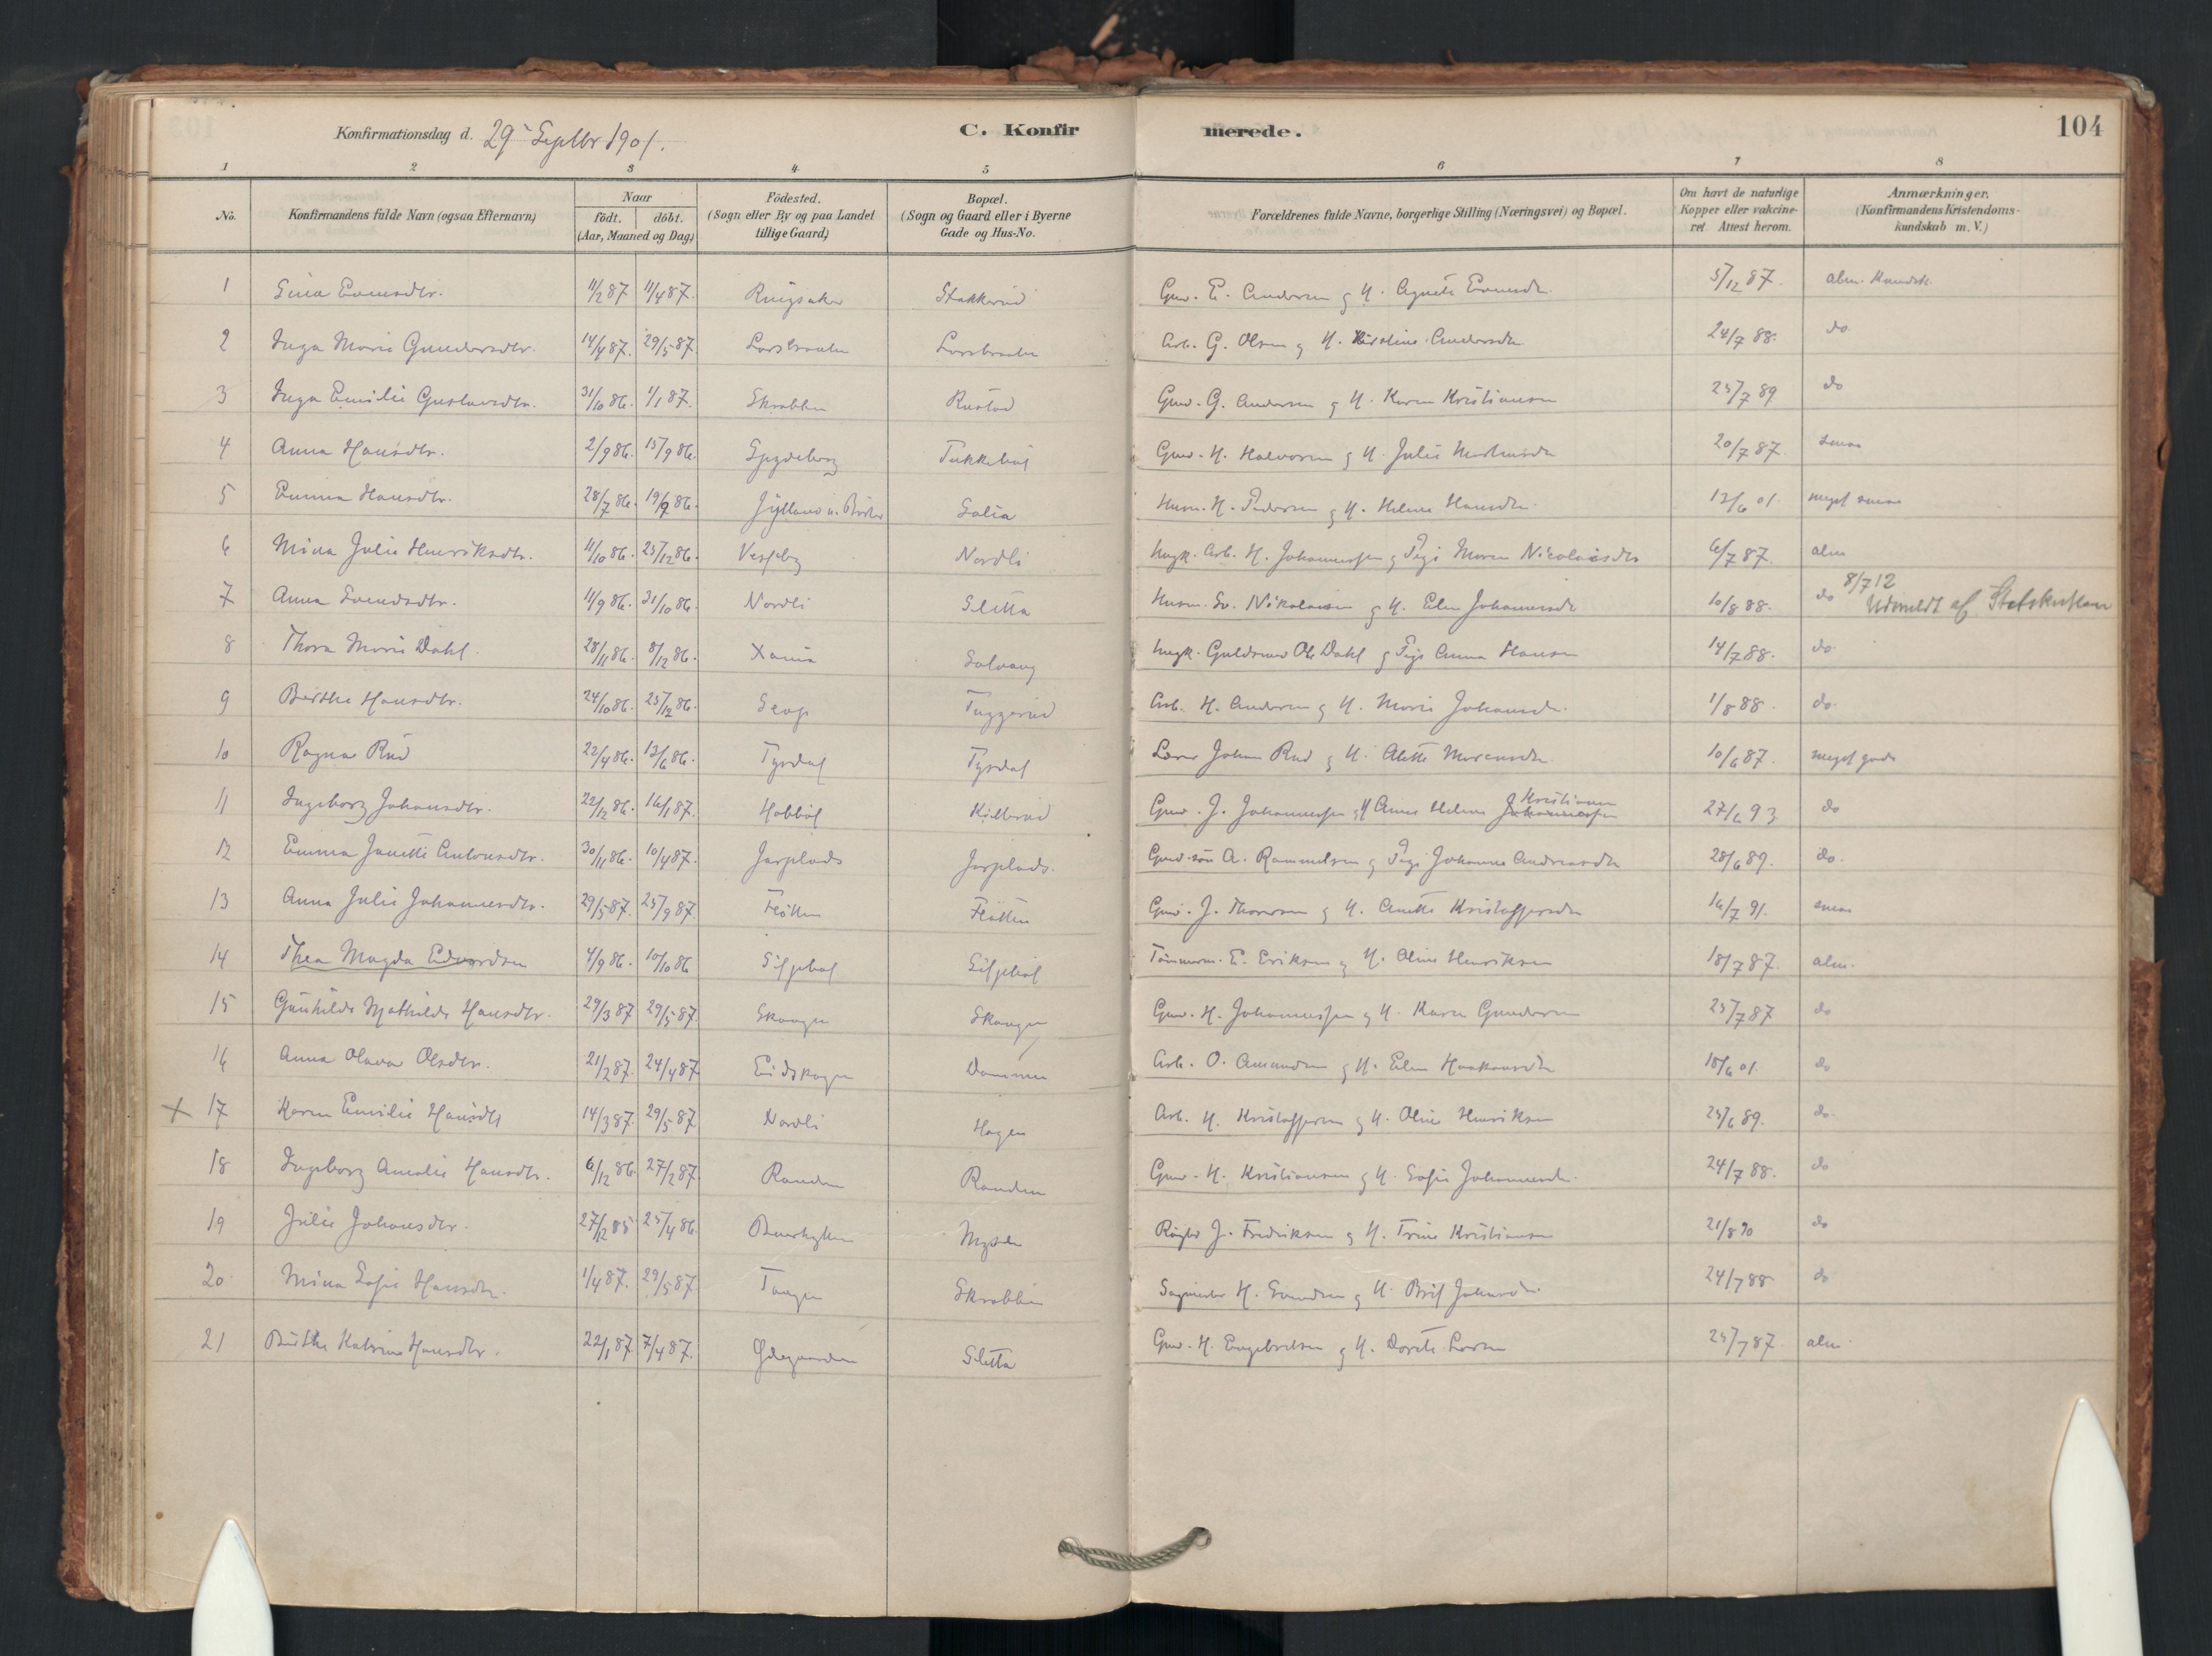 Konfirmationsdag d. 29 Septbr 1901.
C. Konfir merede.
104
1 2 3 4 5 6 7 8
No.
Konfirmandens fulde Navn (ogsaa Efternavn)
Naar
födt. döbt.
(Aar, Maaned og Dag)
Födested.
(Sogn eller By og paa Landet
tillige Gaard)
Bopæl.
(Sogn og Gaard eller i Byerne
Gade og Hus-No.
Forældrenes fulde Navne, borgerlige Stilling (Næringsvei) og Bopæl.
Om havt de naturlige
Kopper eller vakcine-
ret Attest herom.
Anmærkninger.
(Konfirmandens Kristendoms-
kundskab m. V.)
1 11/2 87 11/4 87. Ringsaker Stakkerud Gmd. E. Andersen og H. Agnete 5/12 87. alm. Kundsk.
2 Inga Marie Gundersdtr. 14/4 87. 29/5 87. Larsbraaten Larsbraaten Arb. G. Olsen og H. Kristine Andersdtr 24/7 88. do
3 Inga Emilie Gustavsdtr. 31/10 86. 1/1 87. Skrabben Rustad Gmd. G. Andersen og H. Karen Kristiansen 25/7 89 do
4 Anna Hansdtr. 2/9 86. 15/9 86. Spydeberg Gmd. H. Halvorsen og H. Julie 20/7 87.
5 Emma Hansdtr. 28/7 86. 19/9 86. Solia Husm. H. Pedersen og H. Helene Hansdtr. 13/6 01. meget
6 Mina Julie Henriksdtr. 11/10 86. 25/12 86. Vestby Nordli Ungk. Arb. H. Johannessen og Pige Maren Nicolaisdtr 6/7 87. alm
7 Anna Svendsdtr. 11/9 86. 31/10 86. Nordli Sletta Husm. Sv. Nikolaisen og H. Elen Johannesdtr 10/8 88. do 8/7 12
Udmeldt af Statskirken
8 Thora Marie Dahl. 28/11 86. 8/12 86. Xania Solvang Ungk. Guldsmed Ole Dahl og Pige Anna Hansen 14/7 88. do
9 Berthe Hansdtr. 24/10 86. 25/12 86. Tuggerud Arb. H. Andersen og H. Marie Johansdtr. 1/8 88. do.
10 Ragna Rud 22/4 86. 13/6 86. Tysdal Tysdal Lærer Johan Rud og H. Alette 10/6 87. meget god
11 Ingeborg Johansdtr. 22/12 86. 16/1 87. Hobböl Killerud Gmd. J. Johannessen og H Anne Helene Kristiansen 27/6 93 do
12 Emma Janette Antonsdtr. 30/11 86. 10/4 87. Jarplads Jarplads. Gmd. sön A. og Pige Johanne Andreasdtr 28/6 89. do.
13 Anna Julie Johannesdtr. 29/5 87. 25/9 87. Flötten Flötten Gmd. J. Thoresen og H. Anette Kristoffersdtr 16/7 91.
14 Thea Magda Edvardsen 4/9 86. 10/10 86 Siljebol Siljebol Tömmerm. E. Eriksen og H. Oline Henriksen 18/7 87. alm.
15 Gunhilde Mathilde Hansdtr. 29/3 87 29/5 87. Skaugen Skaugen Gmd. H. Johannessen og H. Karen Gundersen 25/7 87 do
16 Anna Olava Olsdtr. 21/2 87. 24/4 87 Eidskogen Dammen Arb. O. Amundsen og H. Elen Haakansdtr 18/6 01. do
+ 17 Karen Emilie Hansdtr 14/3 87. 29/5 87 Nordli Hagen Arb. H. Kristoffersen og H. Oline Henriksen 25/6 89. do
18 Ingeborg Amalie Hansdtr. 6/12 86 27/2 87. Randen Randen Gmd. H. Kristiansen og H. Sofie Johannesdtr. 24/7 88. do
19 Julie Johansdtr. 27/12 85 25/4 86. Mysen J. Fredriksen og H. Trine Kristiansen 21/8 90 do
20 Mina Sofie Hansdtr. 1/4 87. 29/5 87. Taugen Skrabben H. Svendsen og H. Brit Johansdtr. 24/7 88. do
21 Berthe Katrine Hansdtr. 22/1 87. 7/4 87. Ødegaarden Sletta Gmd. H. Engebretsen og H. Dorete Larsen 25/7 87. alm.